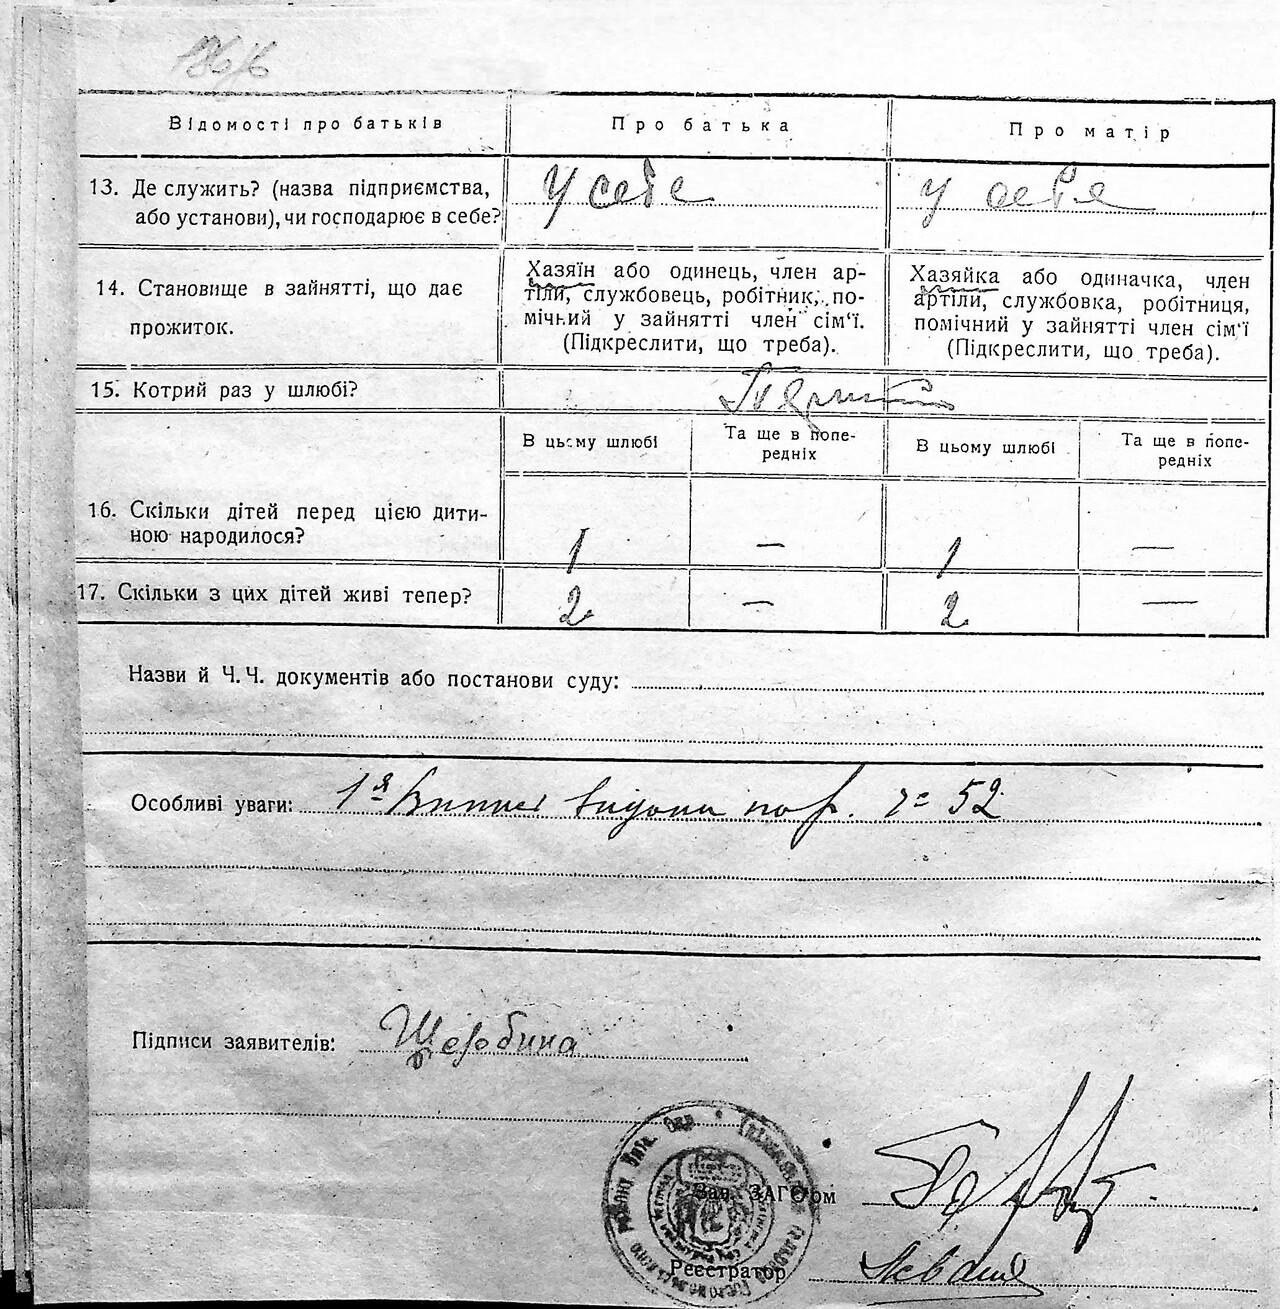 186/6
Відомості про батьків
Про батька
Про матір
13. Де служить? (назва підприємства,
або установи), чи господарює в себе?
У себе
у себе
14. Становище в зайнятті, що дає
прожиток.
Хазяїн або одинець, член ар-
тіли, службовець, робітник, по-
мічний у зайнятті член сім'ї.
(Підкреслити, що треба).
Хазяйка або одиначка, член
артіли, службовка, робітниця,
помічний у зайнятті член сім'ї
(Підкреслити, що треба).
15. Котрий раз у шлюбі?
В цьому шлюбі
Та ще в попе-
редніх
В цьому шлюбі
Та ще в попе-
редніх
16. Скільки дітей перед цією дити-
ною народилося?
1 — 1 —
17. Скільки з цих дітей живі тепер?
2 — 2 —
Назви й Ч. Ч. документів або постанови суду:
Особливі уваги: 1я 52
Підписи заявителів: Щербина
Зав. ЗАГС'ом
Реєстратор